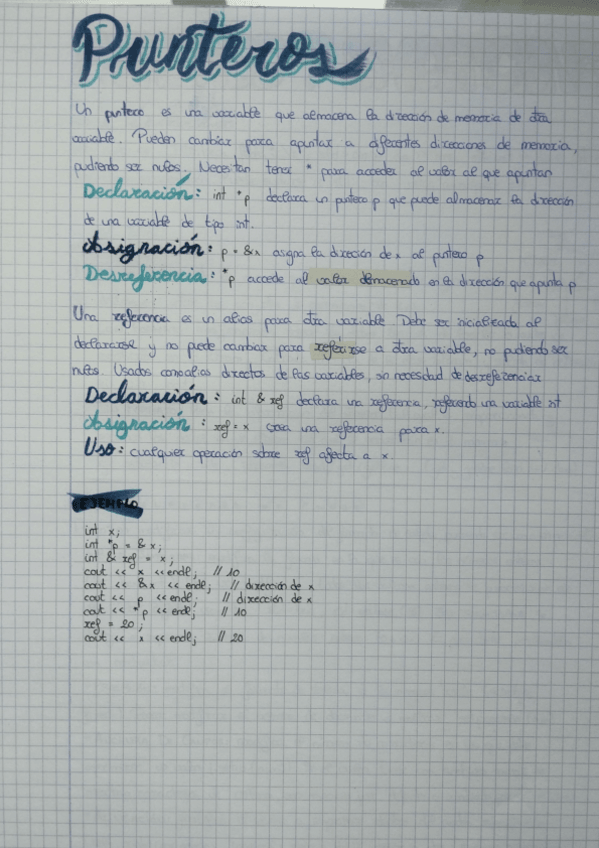 Punteros
Un puntero es una variable que almacena la dirección de memoria de otra
variable. Pueden cambiar para apuntar a diferentes direcciones de memoria,
pudiendo ser nulos. Necesitan tener * para acceder al valor al que apuntan
Declaración: int *p declara un puntero p que puede almacenar la dirección
de una variable de tipo int.
Asignación: p = &x asigna la dirección de x al puntero p
Desreferencia: *p accede al valor almacenado en la dirección que apunta p
Una referencia es un alias para otra variable Debe ser inicializada al
declararse y no puede cambiar para referirse a otra variable, no pudiendo ser
nulos. Usados como alias directos de las variables, sin necesidad de desreferenciar
Declaración: int & ref declara una referencia, una variable int
Asignación: ref = x una referencia para x.
Uso: cualquier operación sobre ref afecta a x.
EJEMPLO
int x;
int *p = & x;
int & ref = x;
cout << x << endl; // 10
cout << &x << endl; // dirección de x
cout << p << endl; // dirección de x
cout << *p << endl; // 10
ref = 20;
cout << x << endl; // 20